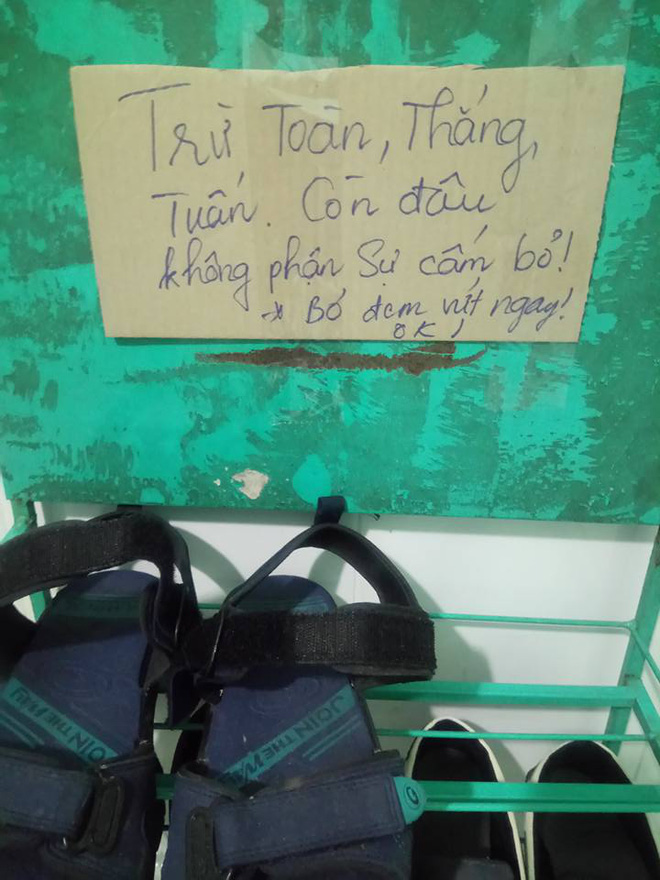 Trừ Toàn, Thắng,
Tuấn. Còn đâu
không phận sự cấm bỏ!
* Bỏ đem vứt ngay!
OK!
JOIN THE WAY
JOIN THE WAY